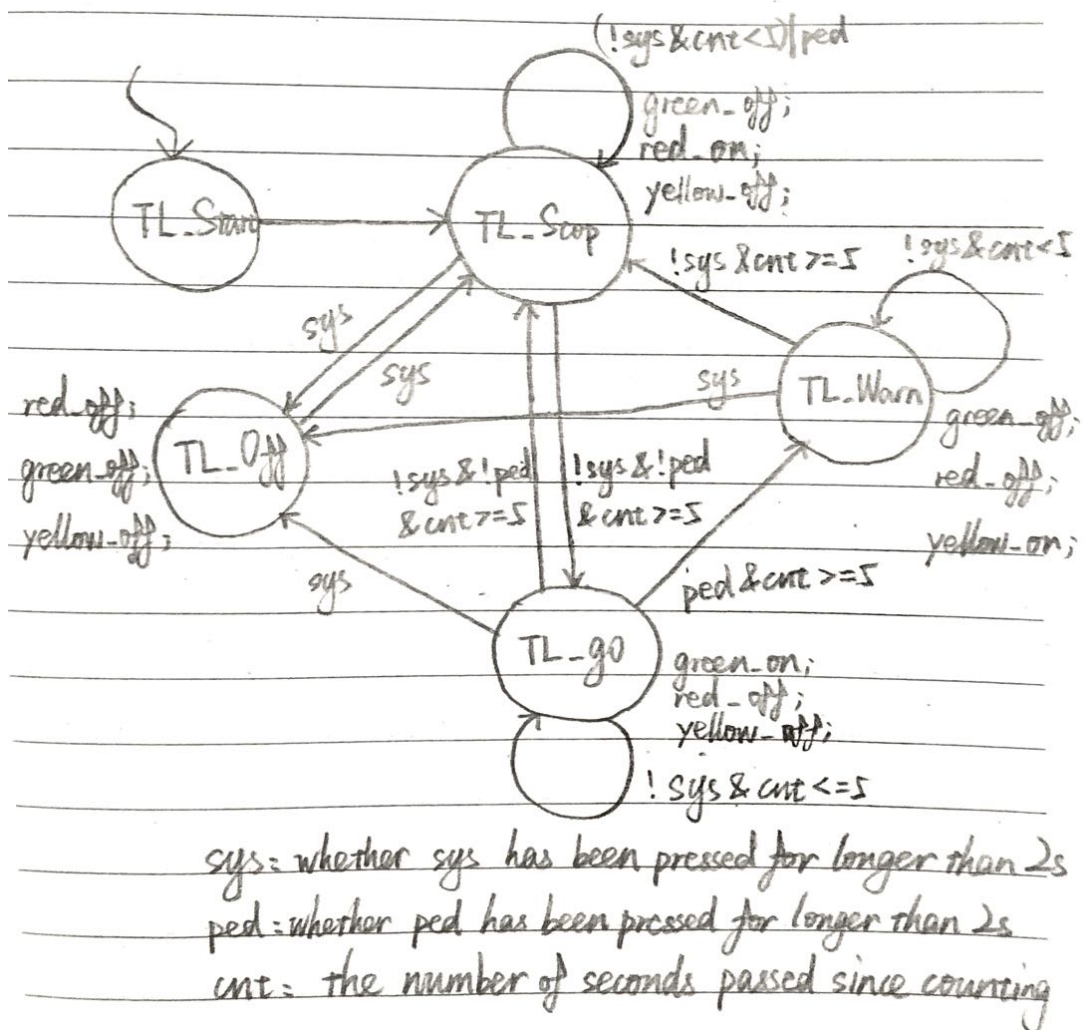 (!sys&cnt<5)|ped
green_off;
red_on;
yellow_off;
TL_Start
TL_Stop
!sys&cnt>=5
!sys&cnt<5
sys
sys
sys
TL_Warn
red_off;
green_off;
yellow_off;
TL_Off
green_off;
red_off;
yellow_on;
!sys&!ped
&cnt>=5
!sys&!ped
&cnt>=5
sys
ped&cnt>=5
TL_go
green_on;
red_off;
yellow_off;
!sys&cnt<=5
sys: whether sys has been pressed for longer than 2s
ped: whether ped has been pressed for longer than 2s
cnt: the number of seconds passed since counting